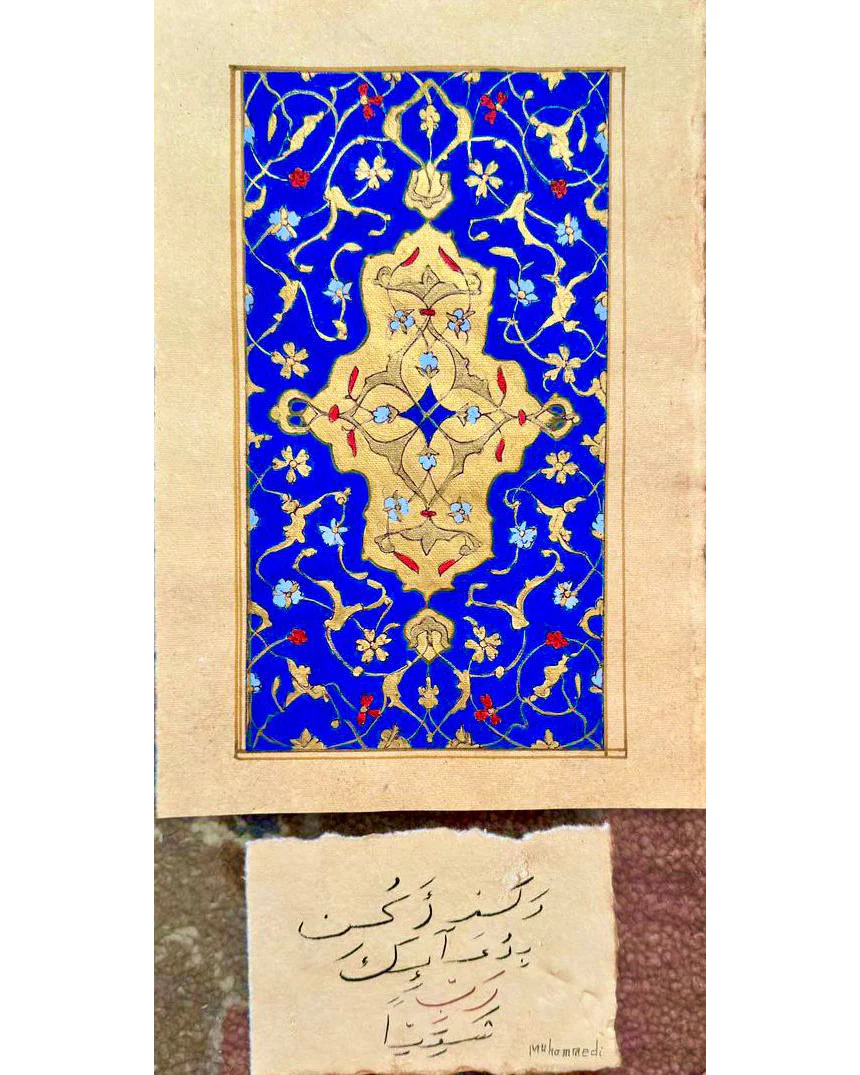 وَلَمْ أَكُن
بِدُعَآئِكَ
رَبِّ
شَقِيًّا
Muhammedi